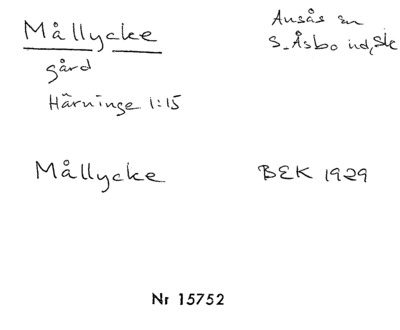 Mållycke
gård
Härninge 1:15
Ausås sn
S. Åsbo hd, Sk
Mållycke
BEK 1929
Nr 15752